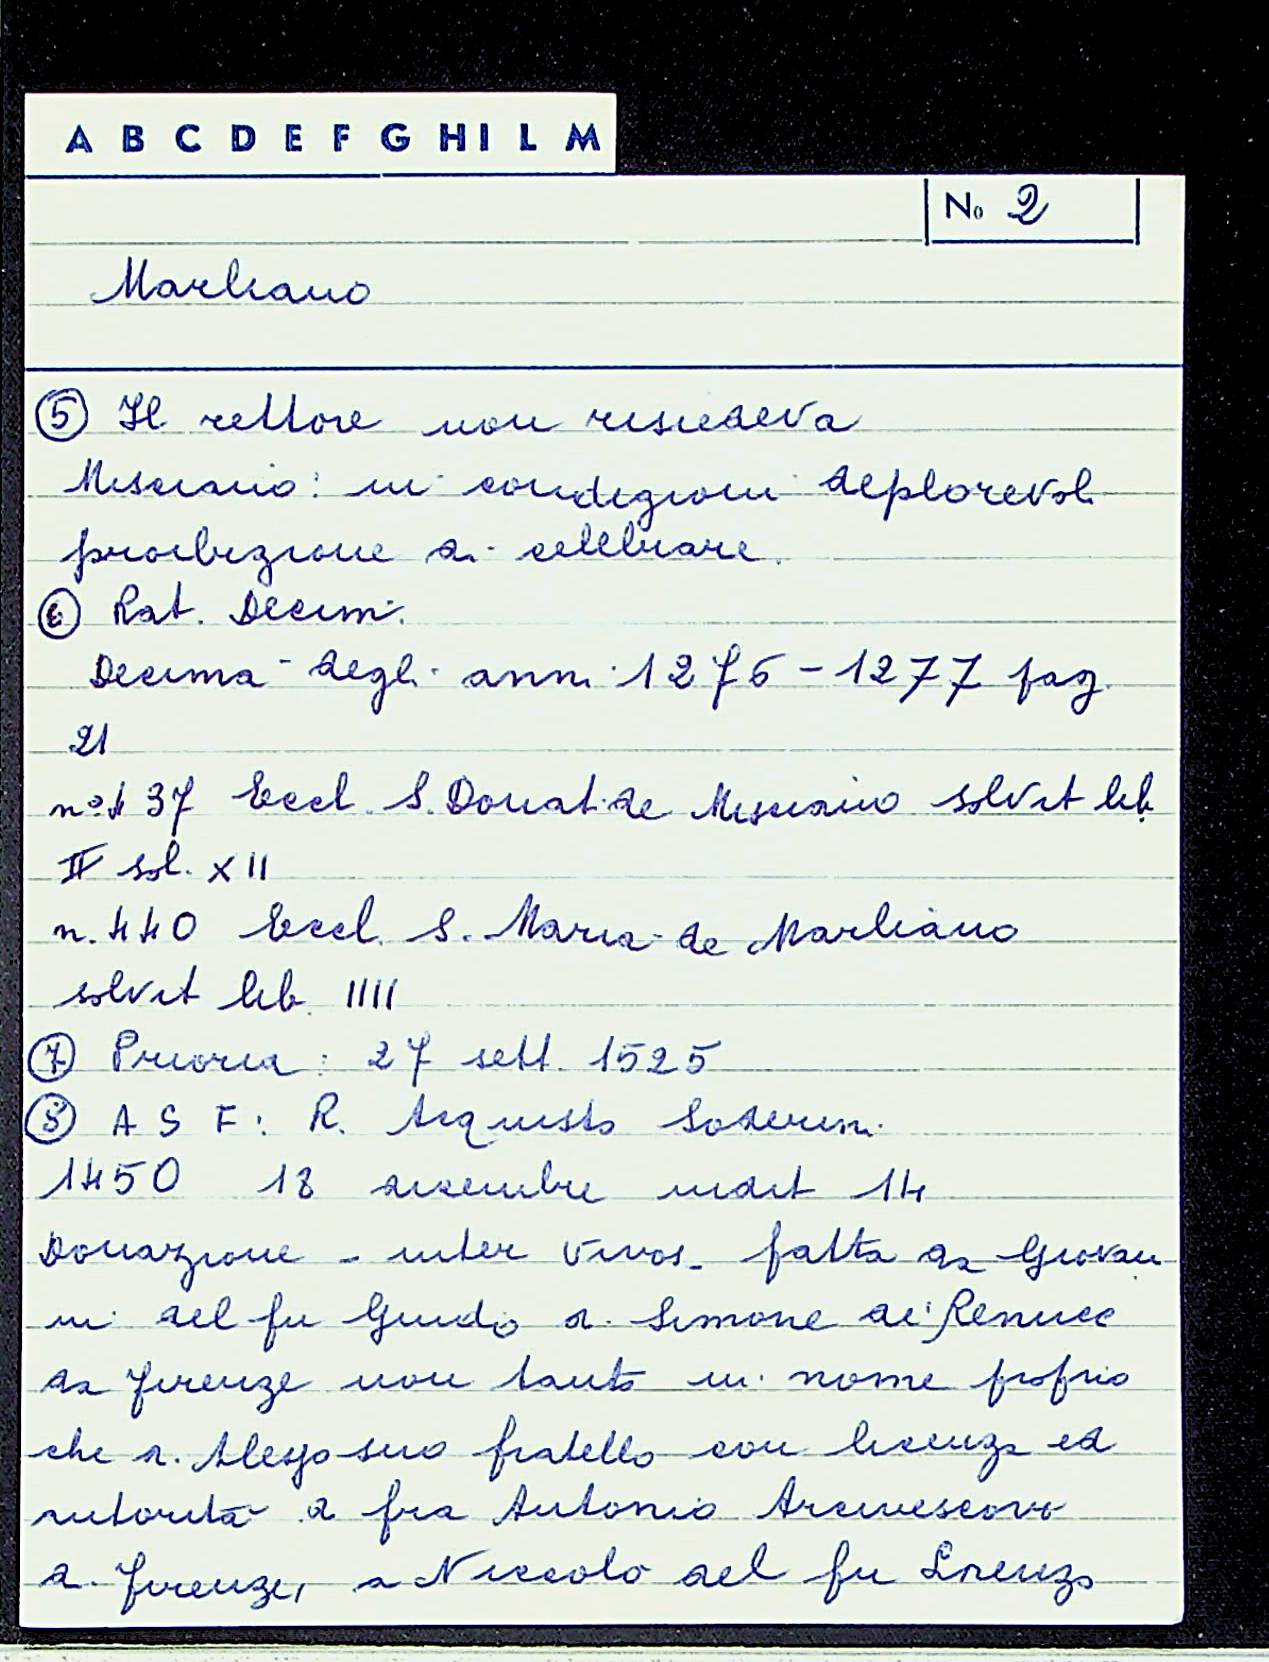 A B C D E F G H I L M
No 2
Marliano
5 Il rettore non risiedeva
Misciano: in condizioni deplorevoli
proibizione di celebrare.
6 Rat. Decim.
Decima degli anni 1276-1277 pag.
21
n° 437 Eccl. S. Donati de Misciano solvit lib.
IV sol. XII
n. 440 Eccl. S. Maria de Marliano
solvit lib. IIII
7 Prioria: 27 sett. 1525
8 A S F: R. Acquisto Soderini
1450 18 dicembre indit 14
Donazione - inter vivos - fatta da Giovan
ni del fu Guido di Simone de'
da Firenze non tanto in nome proprio
che di suo fratello con licenza ed
autorità di fra Antonio Arcivescovo
di Firenze, a Niccolo del fu Lorenzo